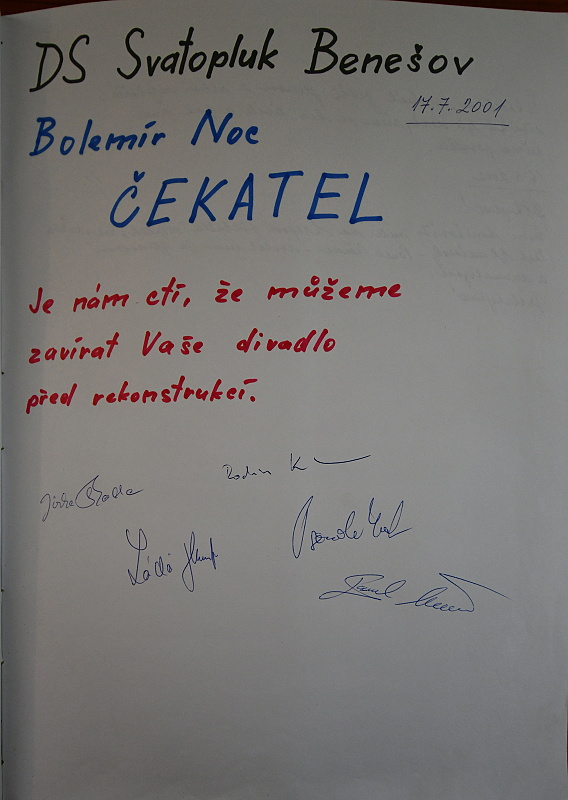 DS Svatopluk Benešov
17.7.2001
Bolemír Noc
ČEKATEL
Je nám ctí, že můžeme
zavírat Vaše divadlo
před rekonstrukcí.
Láďa